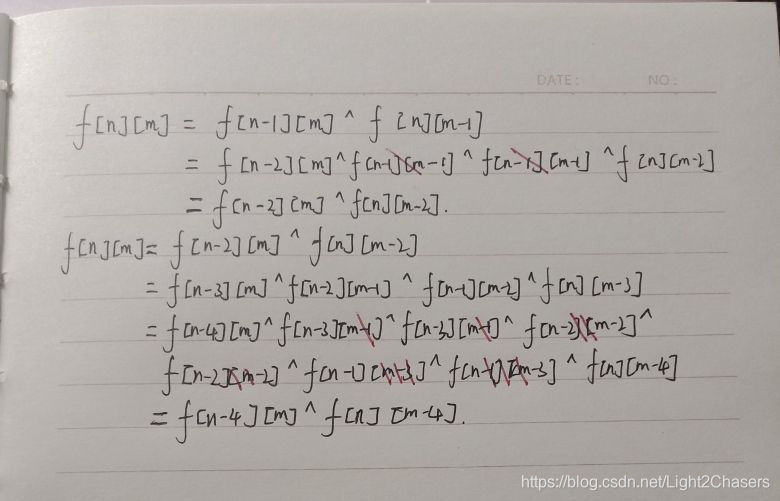 DATE: NO:
f[n][m] = f[n-1][m] ^ f[n][m-1]
= f[n-2][m]^f[n-1][m-1] ^ f[n-1][m-1] ^f[n][m-2]
= f[n-2][m] ^f[n][m-2].
f[n][m]= f[n-2][m] ^ f[n][m-2]
= f[n-3][m]^f[n-2][m-1] ^ f[n-1][m-2]^f[n][m-3]
= f[n-4][m]^f[n-3][m-1]^f[n-3][m-1]^ f[n-2][m-2]^
f[n-2][m-2] ^ f[n-1][m-3]^ f[n-1][m-3] ^ f[n][m-4]
= f[n-4][m] ^ f[n][m-4].
https://blog.csdn.net/Light2Chasers